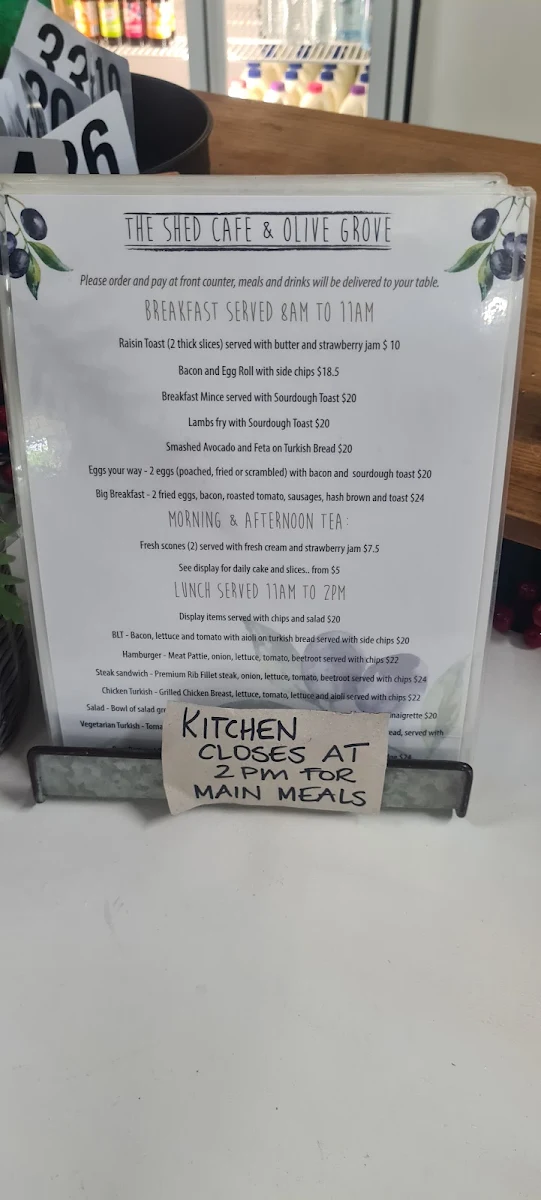 33
10
30
26
THE SHED CAFE & OLIVE GROVE
Please order and pay at front counter, meals and drinks will be delivered to your table.
BREAKFAST SERVED 8AM TO 11AM
Raisin Toast (2 thick slices) served with butter and strawberry jam $ 10
Bacon and Egg Roll with side chips $18.5
Breakfast Mince served with Sourdough Toast $20
Lambs fry with Sourdough Toast $20
Smashed Avocado and Feta on Turkish Bread $20
Eggs your way - 2 eggs (poached, fried or scrambled) with bacon and sourdough toast $20
Big Breakfast - 2 fried eggs, bacon, roasted tomato, sausages, hash brown and toast $24
MORNING & AFTERNOON TEA:
Fresh scones (2) served with fresh cream and strawberry jam $7.5
See display for daily cake and slices.. from $5
LUNCH SERVED 11AM TO 2PM
Display items served with chips and salad $20
BLT - Bacon, lettuce and tomato with aioli on turkish bread served with side chips $20
Hamburger - Meat Pattie, onion, lettuce, tomato, beetroot served with chips $22
Steak sandwich - Premium Rib Fillet steak, onion, lettuce, tomato, beetroot served with chips $24
Chicken Turkish - Grilled Chicken Breast, lettuce, tomato, lettuce and aioli served with chips $22
Salad - Bowl of salad gr inaigrette $20
Vegetarian Turkish - Toma ead, served with
$24
KITCHEN
CLOSES AT
2 PM FOR
MAIN MEALS